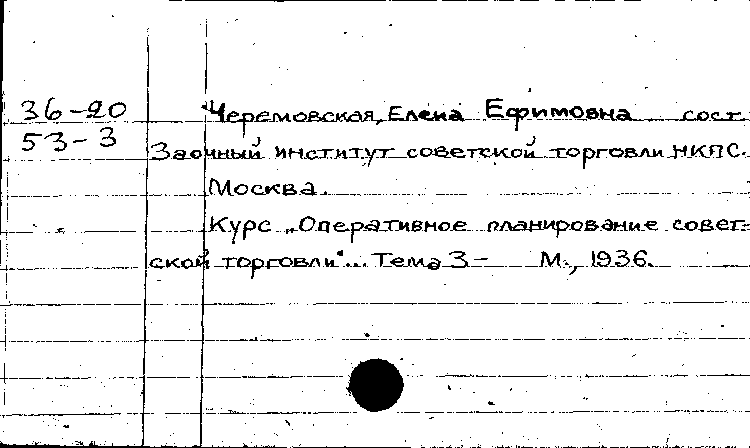 36-20 Черемовская, Елена Ефимовна сост.
53-3 Заочный институт советской торговли НКПС.
Москва.
Курс „Оперативное планирование совет-
ской торговли"... Тема 3- М., 1936.